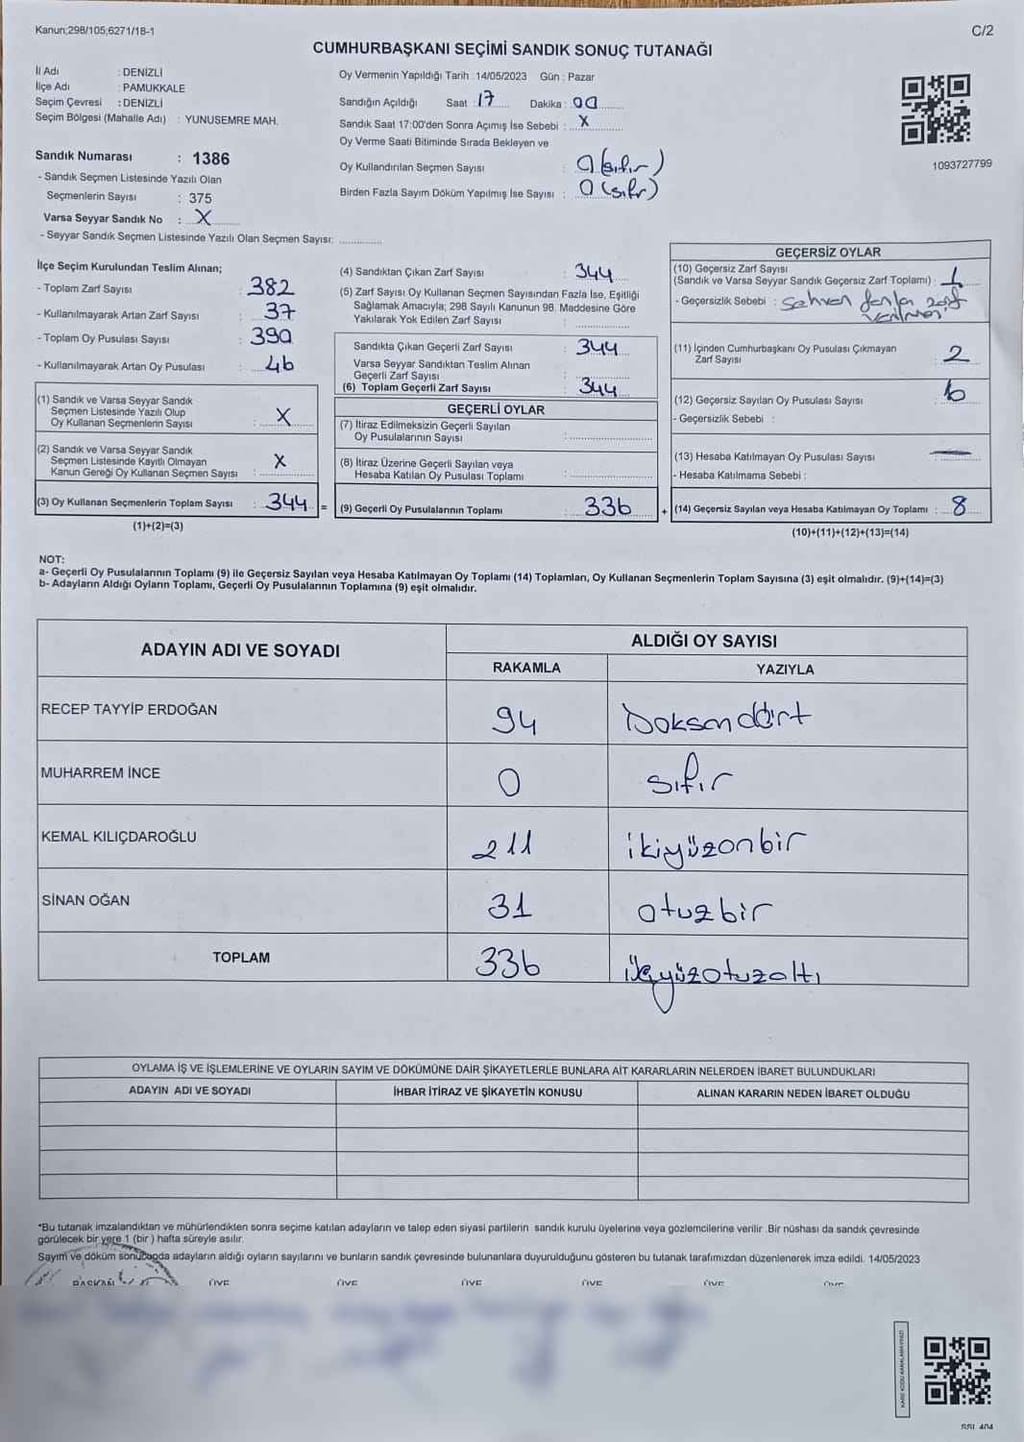 Kanun;298/105;6271/18-1
C/2
CUMHURBAŞKANI SEÇİMİ SANDIK SONUÇ TUTANAĞI
İl Adı : DENİZLİ
İlçe Adı : PAMUKKALE
Seçim Çevresi : DENİZLİ
Seçim Bölgesi (Mahalle Adı) : YUNUSEMRE MAH.
Sandık Numarası : 1386
- Sandık Seçmen Listesinde Yazılı Olan
Seçmenlerin Sayısı : 375
Varsa Seyyar Sandık No : X
- Seyyar Sandık Seçmen Listesinde Yazılı Olan Seçmen Sayısı: ............
Oy Vermenin Yapıldığı Tarih : 14/05/2023 Gün : Pazar
Sandığın Açıldığı Saat : 17 Dakika : 00
Sandık Saat 17:00'den Sonra Açımış İse Sebebi : X
Oy Verme Saati Bitiminde Sırada Bekleyen ve
Oy Kullandırılan Seçmen Sayısı : 0 (sıfır)
Birden Fazla Sayım Döküm Yapılmış İse Sayısı : 0 (sıfır)
1093727799
İlçe Seçim Kurulundan Teslim Alınan;
- Toplam Zarf Sayısı : 382
- Kullanılmayarak Artan Zarf Sayısı : 37
- Toplam Oy Pusulası Sayısı : 390
- Kullanılmayarak Artan Oy Pusulası : 46
(1) Sandık ve Varsa Seyyar Sandık
Seçmen Listesinde Yazılı Olup
Oy Kullanan Seçmenlerin Sayısı : X
(2) Sandık ve Varsa Seyyar Sandık
Seçmen Listesinde Kayıtlı Olmayan
Kanun Gereği Oy Kullanan Seçmen Sayısı : X
(3) Oy Kullanan Seçmenlerin Toplam Sayısı : 344 =
(1)+(2)=(3)
(4) Sandıktan Çıkan Zarf Sayısı : 344
(5) Zarf Sayısı Oy Kullanan Seçmen Sayısından Fazla İse, Eşitliği
Sağlamak Amacıyla; 298 Sayılı Kanunun 98. Maddesine Göre
Yakılarak Yok Edilen Zarf Sayısı :
Sandıkta Çıkan Geçerli Zarf Sayısı : 344
Varsa Seyyar Sandıktan Teslim Alınan
Geçerli Zarf Sayısı :
(6) Toplam Geçerli Zarf Sayısı : 344
GEÇERLİ OYLAR
(7) İtiraz Edilmeksizin Geçerli Sayılan
Oy Pusulalarının Sayısı :
(8) İtiraz Üzerine Geçerli Sayılan veya
Hesaba Katılan Oy Pusulası Toplamı :
(9) Geçerli Oy Pusulalarının Toplamı : 336 +
GEÇERSİZ OYLAR
(10) Geçersiz Zarf Sayısı
(Sandık ve Varsa Seyyar Sandık Geçersiz Zarf Toplamı) :
- Geçersizlik Sebebi : Sehven fazla zarf
verilmesi
(11) İçinden Cumhurbaşkanı Oy Pusulası Çıkmayan
Zarf Sayısı : 2
(12) Geçersiz Sayılan Oy Pusulası Sayısı : 6
- Geçersizlik Sebebi :
(13) Hesaba Katılmayan Oy Pusulası Sayısı : —
- Hesaba Katılmama Sebebi :
(14) Geçersiz Sayılan veya Hesaba Katılmayan Oy Toplamı : 8
(10)+(11)+(12)+(13)=(14)
NOT:
a- Geçerli Oy Pusulalarının Toplamı (9) ile Geçersiz Sayılan veya Hesaba Katılmayan Oy Toplamı (14) Toplamları, Oy Kullanan Seçmenlerin Toplam Sayısına (3) eşit olmalıdır. (9)+(14)=(3)
b- Adayların Aldığı Oyların Toplamı, Geçerli Oy Pusulalarının Toplamına (9) eşit olmalıdır.
ADAYIN ADI VE SOYADI
ALDIĞI OY SAYISI
RAKAMLA YAZIYLA
RECEP TAYYİP ERDOĞAN 94 Doksandört
MUHARREM İNCE 0 sıfır
KEMAL KILIÇDAROĞLU 211 ikiyüzonbir
SİNAN OĞAN 31 otuzbir
TOPLAM 336 üçyüzotuzaltı
OYLAMA İŞ VE İŞLEMLERİNE VE OYLARIN SAYIM VE DÖKÜMÜNE DAİR ŞİKAYETLERLE BUNLARA AİT KARARLARIN NELERDEN İBARET BULUNDUKLARI
ADAYIN ADI VE SOYADI İHBAR İTİRAZ VE ŞİKAYETİN KONUSU ALINAN KARARIN NEDEN İBARET OLDUĞU
*Bu tutanak imzalandıktan ve mühürlendikten sonra seçime katılan adayların ve talep eden siyasi partilerin sandık kurulu üyelerine veya gözlemcilerine verilir. Bir nüshası da sandık çevresinde
görülecek bir yere 1 (bir ) hafta süreyle asılır.
Sayım ve döküm sonucunda adayların aldığı oyların sayılarını ve bunların sandık çevresinde bulunanlara duyurulduğunu gösteren bu tutanak tarafımızdan düzenlenerek imza edildi. 14/05/2023
BAŞKAN ÜYE ÜYE ÜYE ÜYE ÜYE ÜYE